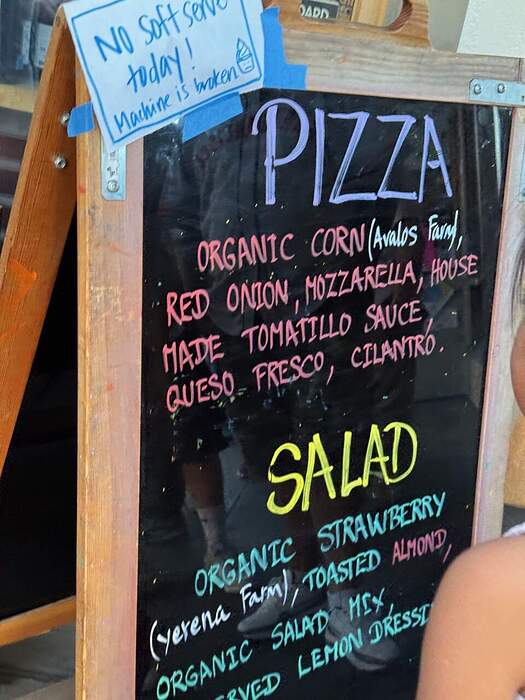 No soft serve
today!
Machine is broken
PIZZA
ORGANIC CORN (Avalos Farm),
RED ONION, MOZZARELLA, HOUSE
MADE TOMATILLO SAUCE,
QUESO FRESCO, CILANTRO.
SALAD
ORGANIC STRAWBERRY
(yerena Farm), TOASTED ALMOND,
ORGANIC SALAD MIX,
RVED LEMON DRESSI